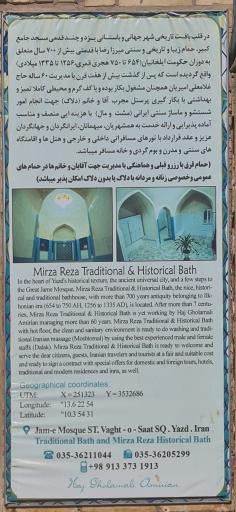 در قلب بافت تاریخی شهر جهانی و باستانی یزد و چند قدمی مسجد جامع
کبیر، حمام زیبا و تاریخی و سنتی میرزا رضا با قدمتی بیش از ۷۰۰ سال متعلق
به دوران حکومت ایلخانیان (۶۵۴ تا ۷۵۰ هجری قمری، ۱۲۵۶ تا ۱۳۳۵ میلادی)
واقع گردیده است که پس از گذشت بیش از هفت قرن با مدیریت ۶۰ ساله حاج
غلامعلی امیریان همچنان مشغول بکار بوده و با کف گرم و محیطی کاملا تمیز و
بهداشتی با بکار گیری پرسنل مجرب آقا و خانم (دلاک) جهت انجام امور
شستشو و ماساژ سنتی ایرانی (مشت و مال) با هزینه ایی منصف و مناسب
آماده پذیرایی و ارائه خدمت به همشهریان، میهمانان، ایرانگردان و جهانگردان
عزیز و عقد قرارداد با تورهای مسافرتی داخلی و خارجی و هتل ها و اقامتگاه
های سنتی و مدرن و بوم گردی و خانه مسافر میباشد.
(حمام قرق با رزرو قبلی و هماهنگی با مدیریت جهت آقایان و خانم ها در حمام های
عمومی وخصوصی زنانه و مردانه با دلاک یا بدون دلاک امکان پذیر میباشد)
Mirza Reza Traditional & Historical Bath
In the heart of Yazd's historical texture, the ancient universal city, and a few steps to
the Great Jame Mosque, Mirza Reza Traditional & Historical Bath, the nice, histori-
cal and traditional bathhouse, with more than 700 years antiquity belonging to Ilk-
honian era (654 to 750 AH, 1256 to 1335 AD), is located. After more than 7 centu-
ries, Mirza Reza Traditional & Historical Bath is yet working by Haj Gholamali
Amirian managing more than 60 years. Mirza Reza Traditional & Historical Bath
with hot floor, the clean and sanitary environment is ready to do washing and tradi-
tional Iranian massage (Moshtomal) by using the best experienced male and female
staffs (Dalak). Mirza Reza Traditional & Historical Bath is ready to welcome and
serve the dear citizens, guests, Iranian travelers and tourists at a fair and suitable cost
and ready to sign a contract with special offers for domestic and foreign tours, hotels,
traditional and modern residences and inns, as well.
Geographical coordinates:
UTM: X=251323 Y=3532686
Longitude: °13.6 22 54
Latitude: °10.3 54 31
Jam-e Mosque ST. Vaght - o - Saat SQ . Yazd . Iran
Traditional Bath and Mirza Reza Historical Bath
035-36211044 035-36205299
+98 913 373 1913
Haj Gholamali Amirian